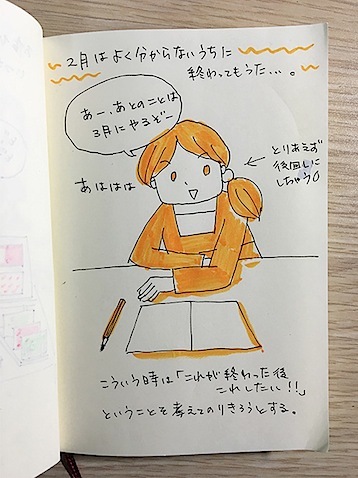 2月はよく分からないうちに
終わってもうた...。
あー、あとのことは
3月にやるぞー
あははは
とりあえず
後回しに
しちゃう
こういう時は「これが終わった後
これしたい!!」
ということを考えてのりきろうとする。